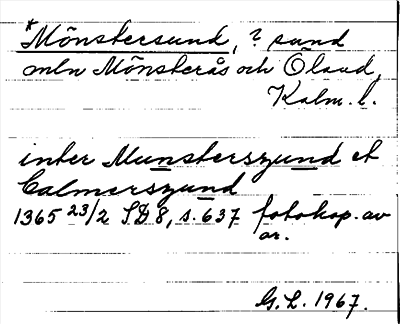 *Mönstersund, ? sund
mln Mönsterås och Öland,
Kalm. l.
inter Munsterszund et
Calmerszund
1365 23/2 SD 8, s. 637 fotokop. av
or.
G. L. 1967.